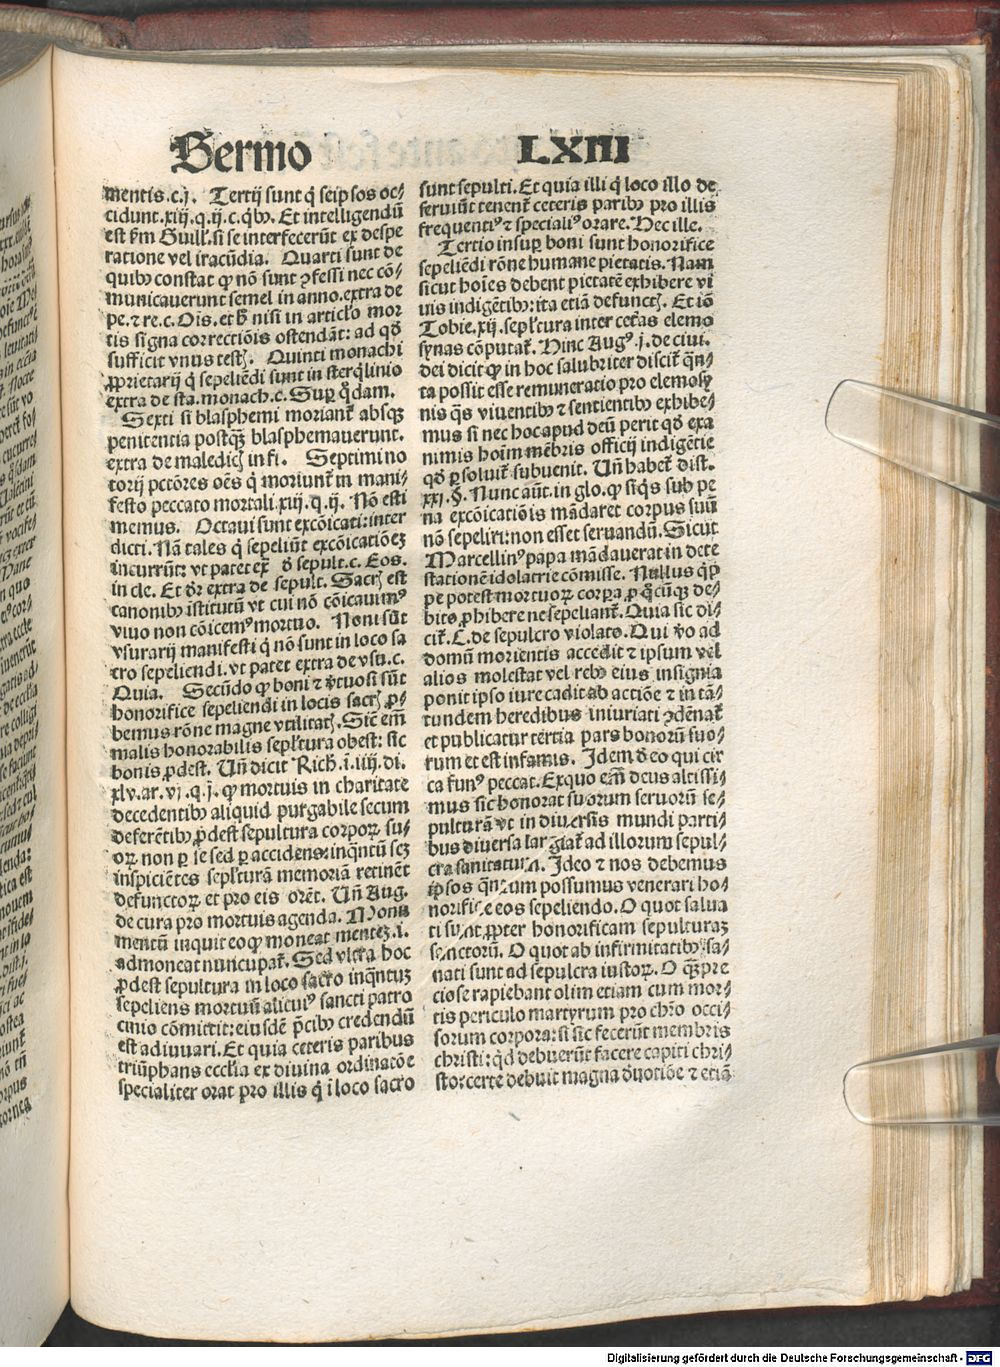 Sermo LXIII
mentis.c.j. Tertij sunt q̇ seipsos oc⸗
cidunt.xiij.q.ij.c.q̄bꝰ. Et intelligendū
est ẜm Guill'. si se interfecerūt ex despe
ratione vel iracūdia. Quarti sunt de
quibꝰ constat ꝙ nō sunt ꝯfessi nec cō⸗
municauerunt semel in anno.extra de
pe.⁊ re.c.Ois.et hͦ nisi in articl̓o mor
tis signa correctiōis ostendāt: ad qđ
sufficit vnus testꝭ. Quinti monachi
ꝓprietarij q̇ sepeliēdi sunt in sterq̇linio
extra de sta.monach.c.Suꝑ q̇dam.
Sexti si blasphemi moriant̄ absqꝫ
penitentia postqꝫ blasphemauerunt.
extra de maledicꝭ in fi. Septimi no
torij pctōres oēs q̇ moriunt̄ in mani⸗
festo peccato mortali.xiij.q.ij. Nō esti
memus. Octaui sunt excōicati:inter
dicti. Nā tales q̇ sepeliūt excōicatiōeꝫ
incurrūt: vt patet ex đ sepult.c. Eos.
in cle. Et dr̄ extra de sepult. Sacrꝭ est
canonibꝰ istitutū vt cui nō cōicauimꝰ
viuo non cōicemꝰ mortuo. Noni sūt
vsurarij manifesti q̇ nō sunt in loco sa
cro sepeliendi.vt patet extra de vsu.c.
Quia. Secūdo ꝙ boni ⁊ v̓tuosi sūt
honorifice sepeliendi in locis sacrꝭ ꝓ⸗
bemus rōne magne vtilitatꝭ. Sic̄ em̄
malis honorabilis sepl̓tura obest: sic
bonis ꝓdest. Uñ dicit Rich̄.i.iiij.di.
xlv.ar.vj.q.j. ꝙ mortuis in charitate
decedentibꝰ aliquid purgabile secum
deferētibꝰ ꝓdest sepultura corpoꝝ su⸗
oꝝ non ꝑ se sed ꝑ accidens:inq̄ntū scꝫ
inspiciētes sepl̓turā memoriā retinēt
defunctoꝝ et pro eis orēt. Uñ Aug.
de cura pro mortuis agenda. Monu
mentū inquit eo ꝙ moneat menteꝫ.i.
admoneat nuncupat̄. Sed vltra hoc
ꝓdest sepultura in loco sacro inq̄ntuꝫ
sepeliens mortuū alicuiꝰ sancti patro
cinio cōmittit:eiusdē p̄cibꝰ credendū
est adiuuari. Et quia ceteris paribus
triūphans eccl̓ia ex diuina ordinatōe
specialiter orat pro illis q̇ ī loco sacro
sunt sepulti. Et quia illi q̇ loco illo de
seruiūt tenent̄ ceteris paribꝰ pro illis
frequentiꝰ ⁊ specialiꝰ orare. Hec ille.
Tertio insuꝑ boni sunt honorifice
sepeliēdi rōne humane pietatis. Nam
sicut hoīes debent pietatē exhibere vi
uis indigētibꝰ:ita etiā defunctꝭ. Et iō
Tobie.xij.sepl̓tura inter cet̄as elemo
synas cōputat̄. Hinc Augꝰ.j.de ciui.
dei dicit ꝙ in hoc salubriter discit̄ q̄n⸗
ta possit esse remuneratio pro elemosy
nis q̄s viuentibꝰ ⁊ sentientibꝰ exhibe⸗
mus si nec hoc apud deū perit qđ exa
nimis hoīm mēbris officij indigētie
qđ ꝑsoluit̄ subuenit. Uñ habet̄ dist.
xxi.§. Nunc aūt.in glo.ꝙ si q̇s sub pe
na excōicatiōis mādaret corpus suū
nō sepeliri:non esset seruandū. Sicut
Marcellinꝰ papa mādauerat in dete
stationē idolatrie cōmisse. Nullus q̇p
pe potest mortuoꝝ corpora ꝓ q̊cūqꝫ de⸗
bito ꝓhibere ne sepeliant̄. Quia sic di⸗
cit̄. C.de sepulcro violato. Qui v̓o ad
domū morientis accedit ⁊ ipsum vel
alios molestat vel rebꝰ eius insignia
ponit ipso iure cadit ab actiōe ⁊ in tā⸗
tundem heredibus iniuriati ꝯdēnat̄
et publicatur tertia pars bonorū suo⸗
rum et est infamis. Idem đ eo qui cir
ca funꝰ peccat. Ex quo em̄ deus altissi
mus sic honorat suorum seruorū se⸗
pulturā vt in diuersis mundi parti
bus diuersa largiat̄ ad illorum sepul⸗
cra sanitatum. Ideo ⁊ nos debemus
ipsos q̄ntum possumus venerari ho⸗
norifice eos sepeliendo. O quot salua
ti sunt ꝓpter honorificam sepulturaꝫ
sanctorū. O quot ab infirmitatibꝰ sa⸗
nati sunt ad sepulcra iustoꝝ. O q̄ꝫ pre
ciose rapiebant olim etiam cum mor⸗
tis periculo martyrum pro chr̄o occi⸗
sorum corpora:si sic fecerūt membris
christi:qđ debuerūt facere capiti chri⸗
sto:certe debuit magna đuotiōe ⁊ etiā
Digitalisierung gefördert durch die Deutsche Forschungsgemeinschaft - DFG